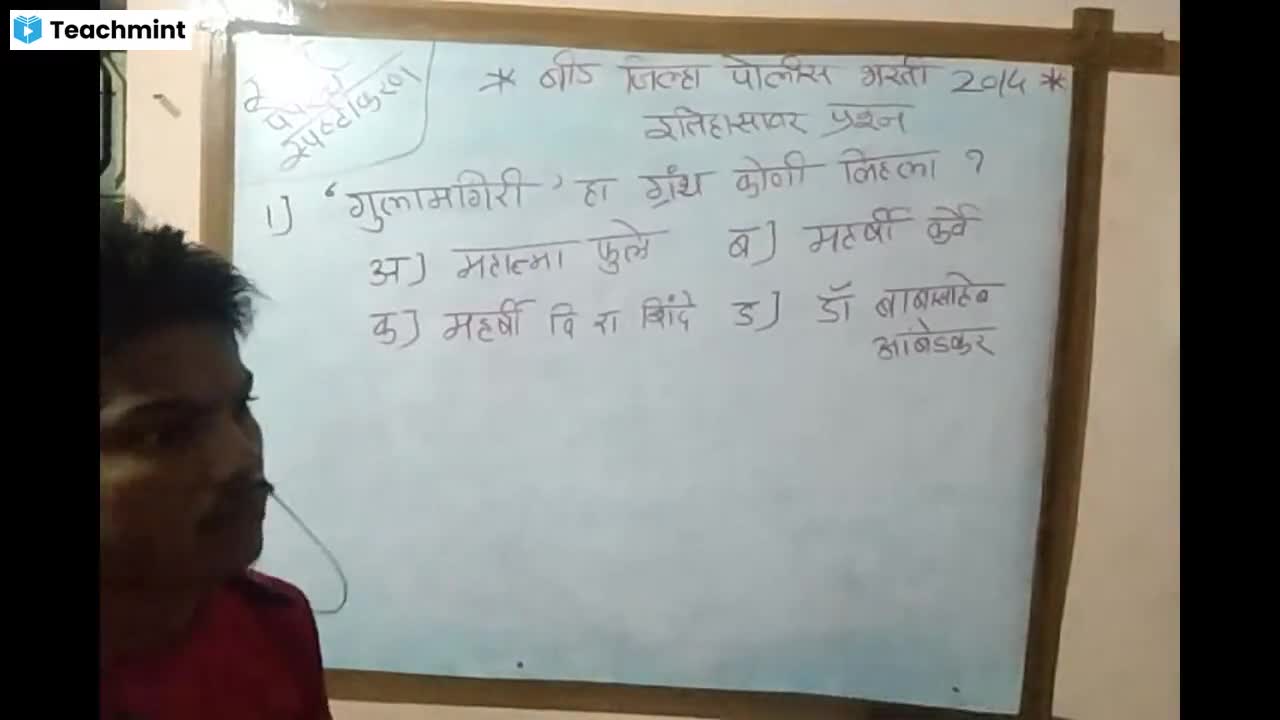 Teachmint
स्पष्टीकरण
* बीड जिल्हा पोलीस भरती 2014 *
इतिहासावर प्रश्न
1] ‘गुलामगिरी’ हा ग्रंथ कोणी लिहला ?
अ] महात्मा फुले ब] महर्षी कर्वे
क] महर्षी वि रा शिंदे ड] डॉ बाबासाहेब
आंबेडकर